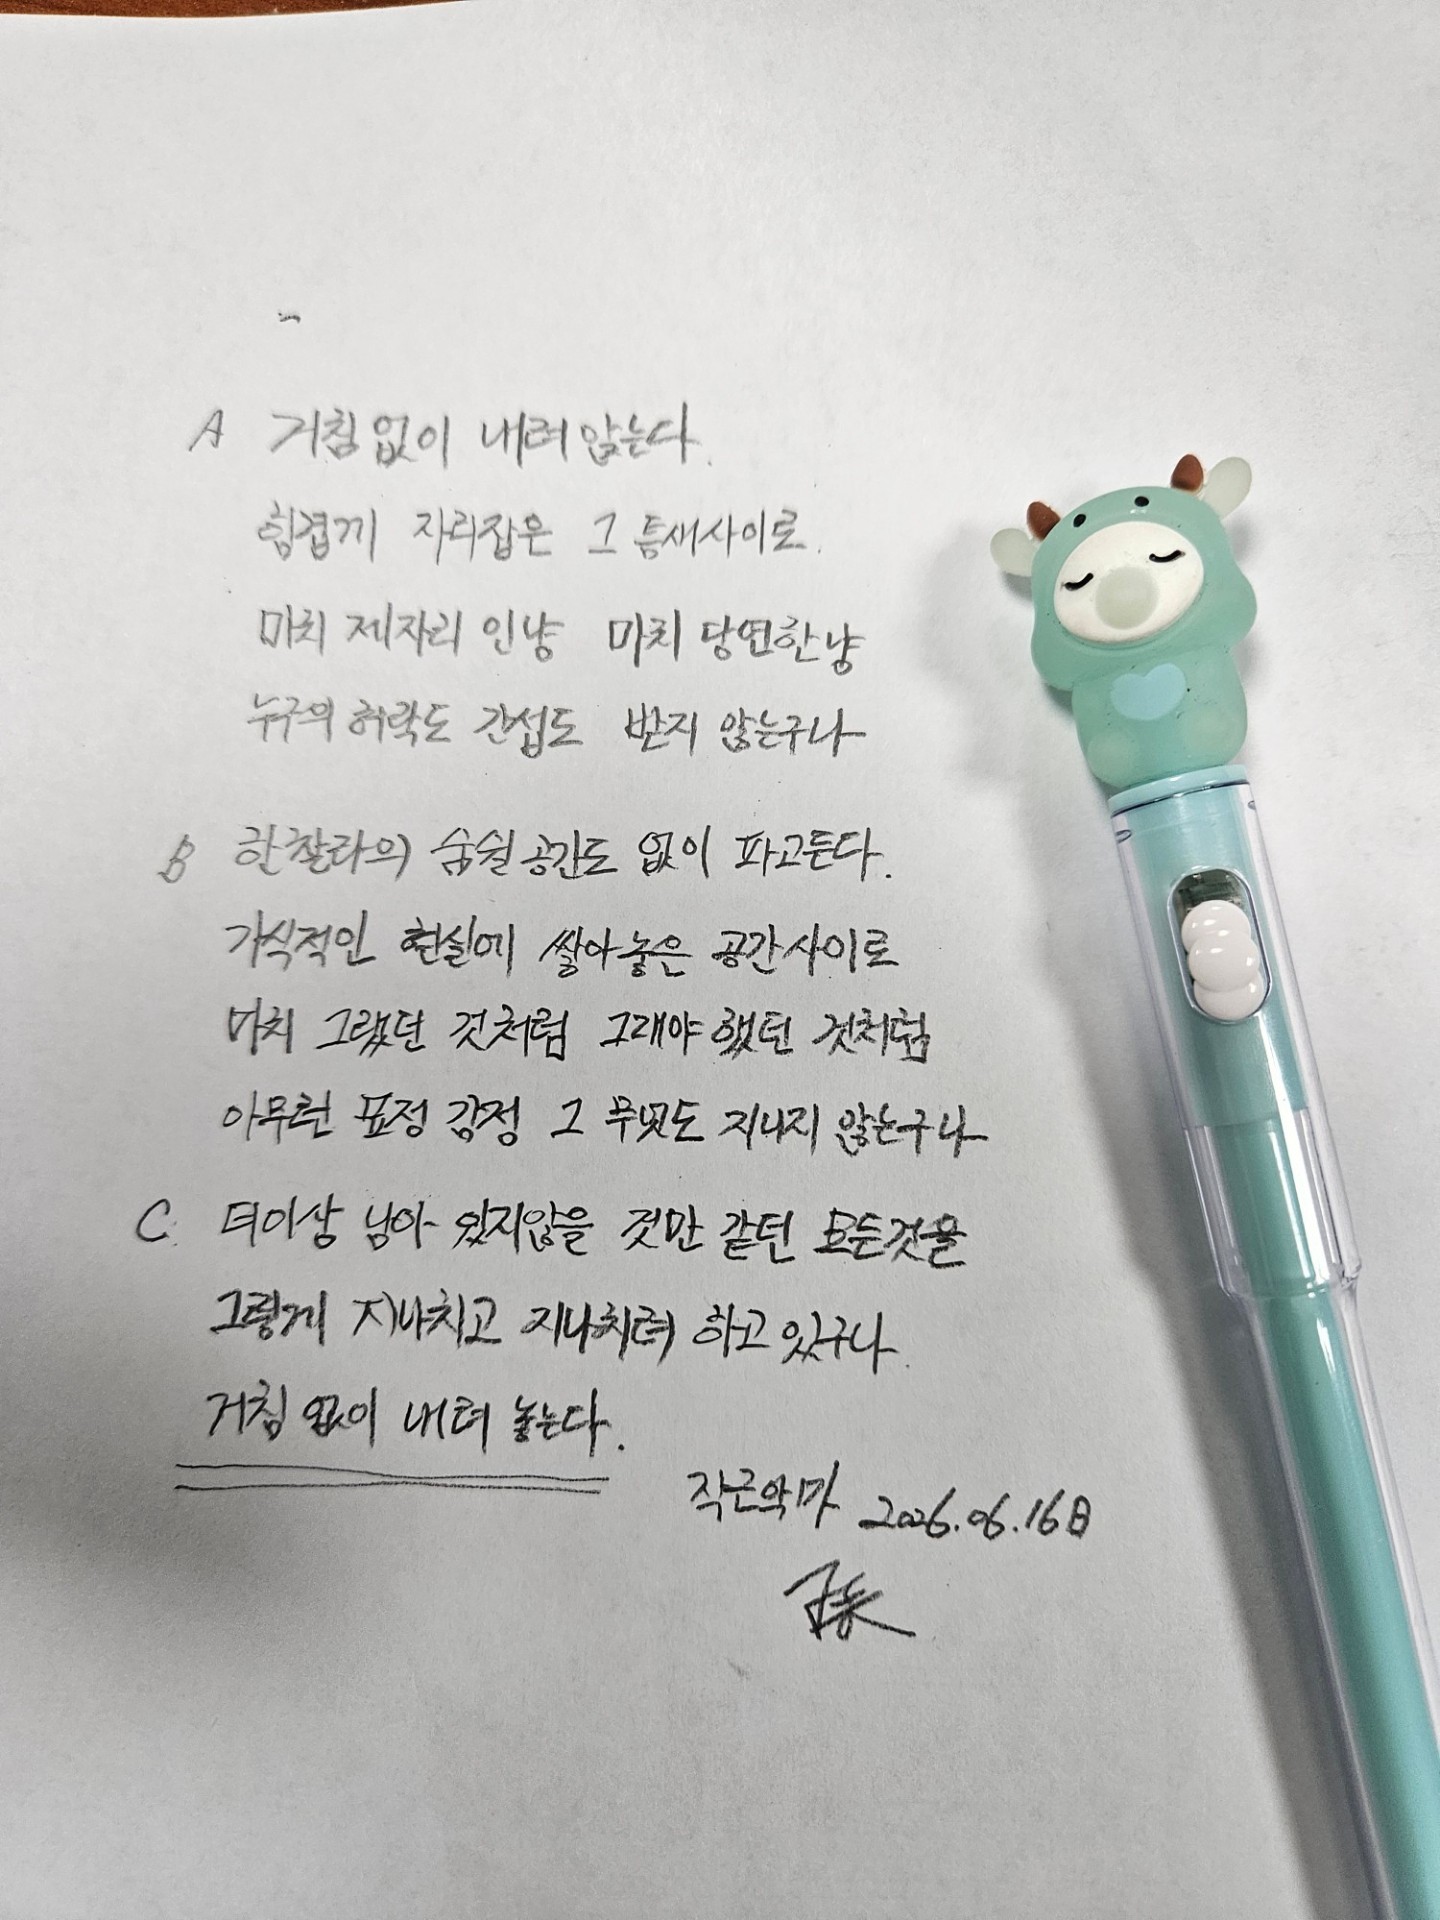 A 거침없이 내려앉는다.
힘겹게 자리잡은 그 틈새사이로.
마치 제자리 인냥 마치 당연한냥
누구의 허락도 간섭도 받지 않는구나
B 한찰라의 숨쉴공간도 없이 파고든다.
가식적인 현실에 쌓아놓은 공간사이로
마치 그랬던 것처럼 그래야했던 것처럼
아무런 표정 감정 그 무엇도 지니지 않는구나
C. 더이상 남아 있지않을 것만 같던 모든것을
그렇게 지나치고 지나치려 하고 있구나.
거침 없이 내려 놓는다.
작은악마 2026.06.16日